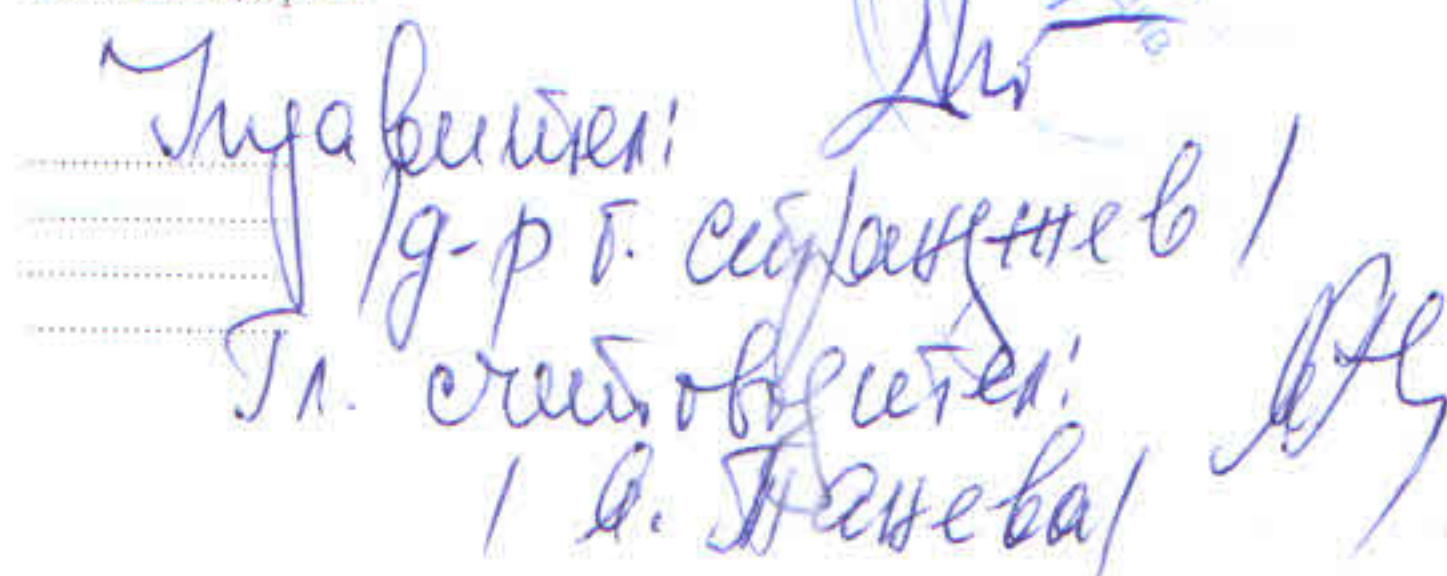 Управител:
/д-р Г. Странджев/
Гл. счетоводител:
/ А. Танева/